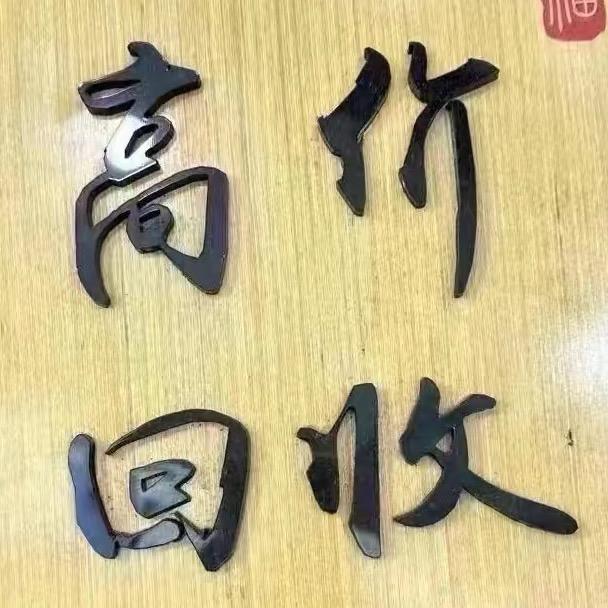 高价
回收